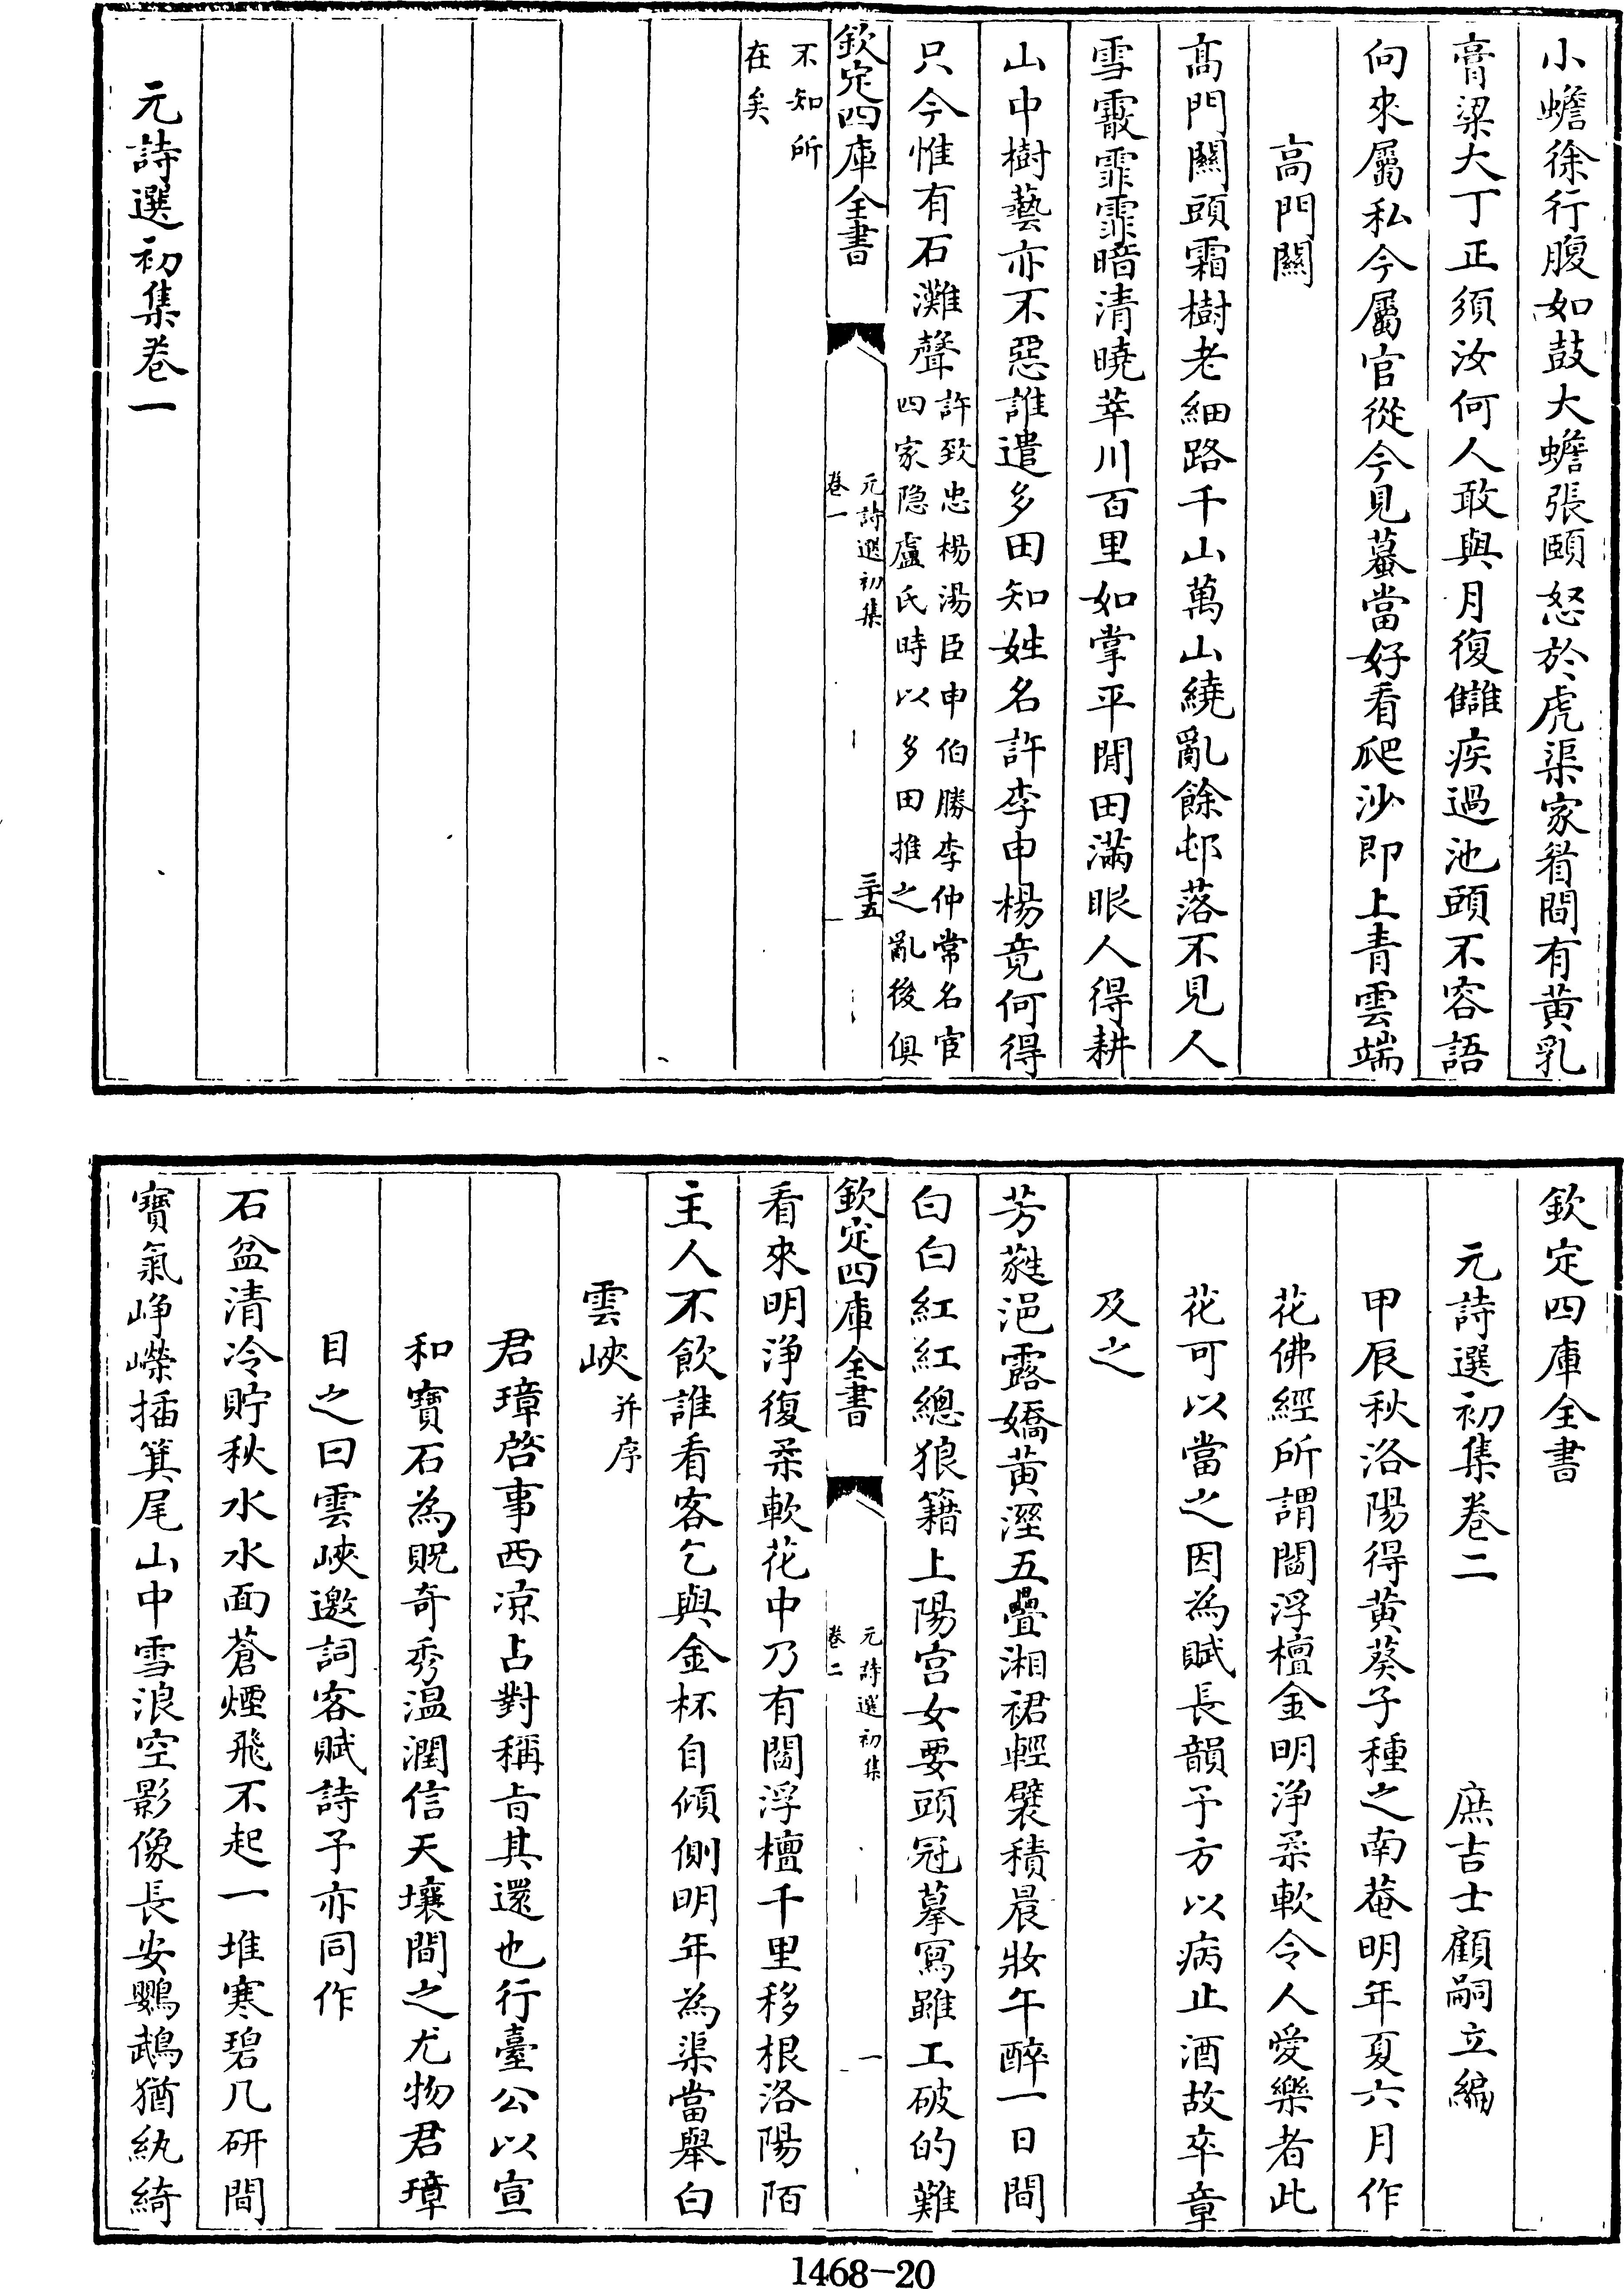 小蟾徐行腹如鼓大蟾張頤怒於虎渠家眢間有黄乳
膏粱大丁正須汝何人敢與月復讎疾過池頭不容語
向來屬私今屬官從今見蟇當好看爬沙即上青雲端
高門關
高門關頭霜樹老細路千山萬山繞亂餘邨落不見人
雪霰霏霏暗清曉莘川百里如掌平閒田滿眼人得耕
山中樹藝亦不惡誰遣多田知姓名許李申楊竟何得
只今惟有石灘聲許致忠楊湯臣申伯勝李仲常名宦
四家隐盧氏時以多田推之亂後俱
欽定四庫全書
元詩選初集
卷一
三十五
不知所
在矣
元詩選初集卷一
欽定四庫全書
元詩選初集卷二 庶吉士顧嗣立編
甲辰秋洛陽得黄葵子種之南菴明年夏六月作
花佛經所謂閻浮檀金明淨柔軟令人愛樂者此
花可以當之因為賦長韻予方以病止酒故卒章
及之
芳蕤浥露嬌黄溼五疊湘裙輕襞積晨妝午醉一日間
白白紅紅總狼籍上陽宫女要頭冠摹寫雖工破的難
欽定四庫全書
元詩選初集
卷二
一
看來明淨復柔軟花中乃有閻浮檀千里移根洛陽陌
主人不飲誰看客乞與金杯自傾側明年為渠當舉白
雲峽并序
君璋啓事西凉占對稱旨其還也行臺公以宣
和寶石為貺奇秀温潤信天壤間之尤物君璋
目之曰雲峽邀詞客賦詩予亦同作
石盆清冷貯秋水水面蒼煙飛不起一堆寒碧几研間
寶氣峥嶸插箕尾山中雪浪空影像長安鸚鵡猶紈綺
1468-20